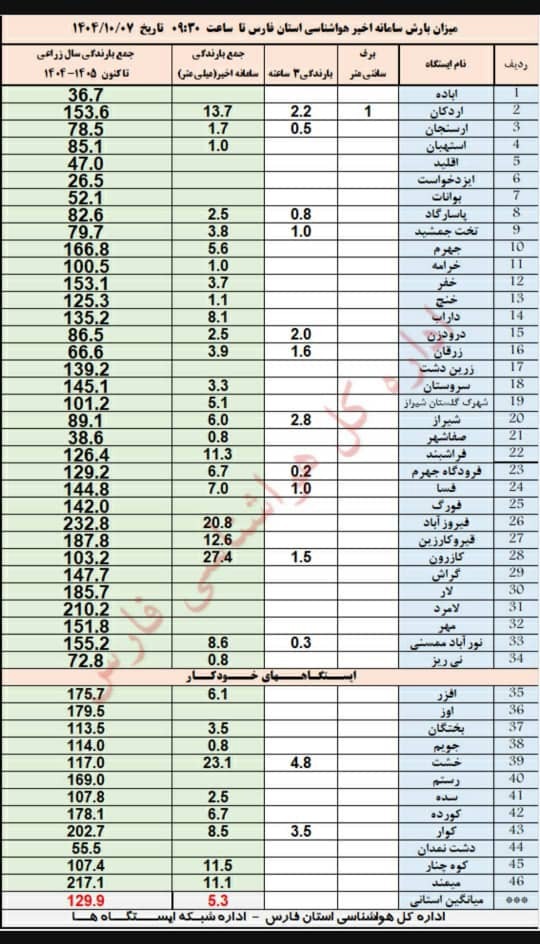 میزان بارش سامانه اخیر هواشناسی استان فارس تا ساعت ۰۹:۳۰ تاریخ ۱۴۰۴/۱۰/۰۷
ردیف نام ایستگاه برف سانتی متر بارندگی ۳ ساعته جمع بارندگی سامانه اخیر(میلی متر) جمع بارندگی سال زراعی تاکنون ۱۴۰۵-۱۴۰۴
1 اباده 36.7
2 اردکان 1 2.2 13.7 153.6
3 ارسنجان 0.5 1.7 78.5
4 استهبان 1.0 85.1
5 اقلید 47.0
6 ایزدخواست 26.5
7 بوانات 52.1
8 پاسارگاد 0.8 2.5 82.6
9 تخت جمشید 1.0 3.8 79.7
10 جهرم 5.6 166.8
11 خرامه 1.0 100.5
12 خفر 3.7 153.1
13 خنج 1.1 125.3
14 داراب 8.1 135.2
15 درودزن 2.0 2.5 86.5
16 زرقان 1.6 3.9 66.6
17 زرین دشت 139.2
18 سروستان 3.3 145.1
19 شهرک گلستان شیراز 5.1 101.2
20 شیراز 2.8 6.0 89.1
21 صفاشهر 0.8 38.6
22 فراشبند 11.3 126.4
23 فرودگاه جهرم 0.2 6.7 129.2
24 فسا 1.0 7.0 144.8
25 فورگ 142.0
26 فیروزآباد 20.8 232.8
27 قیروکارزین 12.6 187.8
28 کازرون 1.5 27.4 103.2
29 گراش 147.7
30 لار 185.7
31 لامرد 210.2
32 مهر 151.8
33 نورآباد ممسنی 0.3 8.6 155.2
34 نی ریز 0.8 72.8
ایستگاههای خودکار
35 افزر 6.1 175.7
36 اوز 179.5
37 بختگان 3.5 113.5
38 جویم 0.8 114.0
39 خشت 4.8 23.1 117.0
40 رستم 169.0
41 سده 2.5 107.8
42 کورده 6.7 178.1
43 کوار 3.5 8.5 202.7
44 دشت نمدان 55.5
45 کوه چنار 11.5 107.4
46 میمند 11.1 217.1
*** میانگین استانی 5.3 129.9
اداره کل هواشناسی استان فارس - اداره شبکه ایستگاه ها
اداره کل هواشناسی فارس